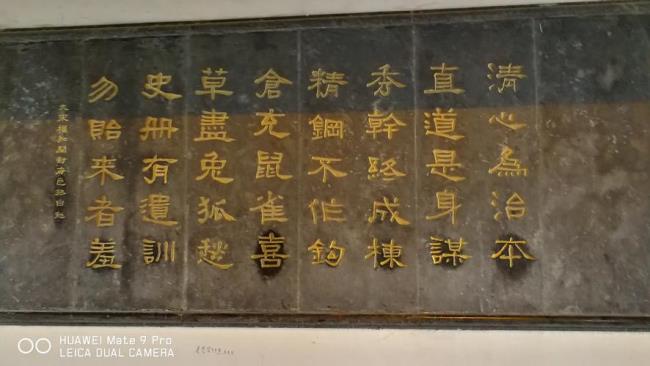 清心為治本
直道是身謀
秀幹終成棟
精鋼不作鈎
倉充鼠雀喜
草盡兔狐愁
史冊有遺訓
勿貽來者羞
權知開封府包拯自
HUAWEI Mate 9 Pro
LEICA DUAL CAMERA